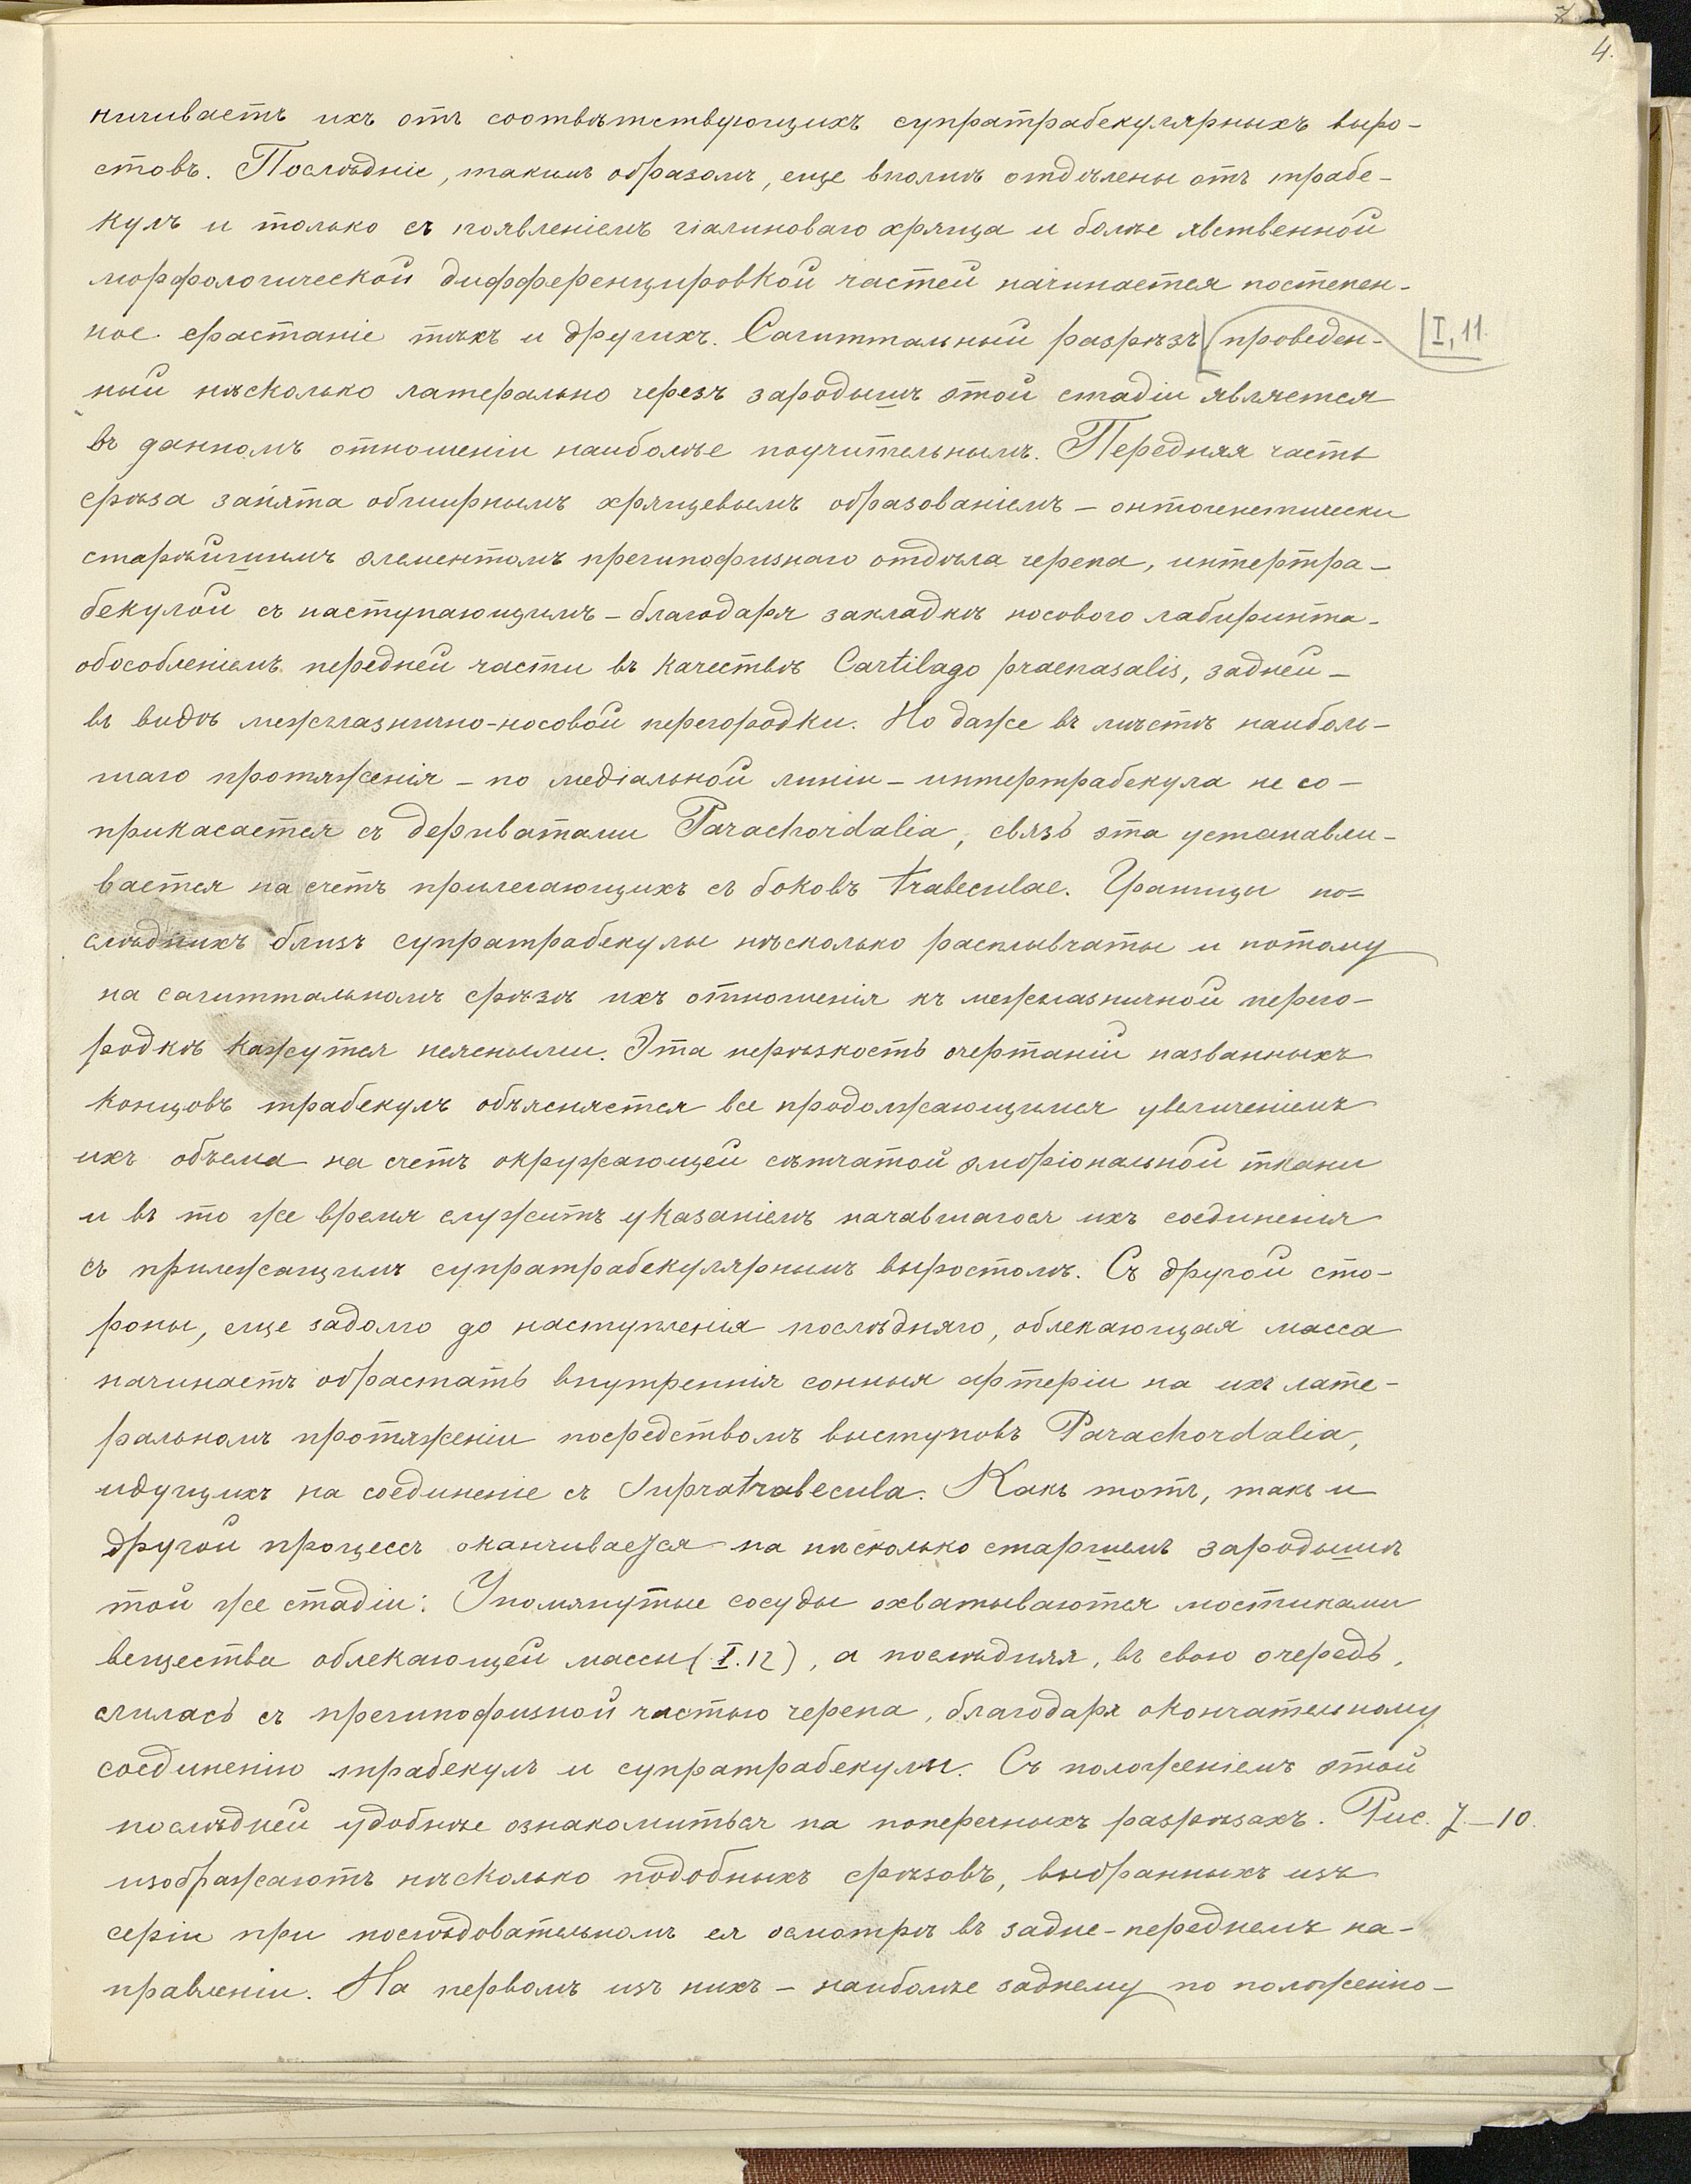 4.
ничиваетъ ихъ отъ соотвѣтствующихъ супратрабекулярныхъ выро-
стовъ. Послѣдніе, такимъ образомъ, еще вполнѣ отдѣлены отъ трабе-
кулъ и только съ появленіемъ гіалиноваго хряща и болѣе явственной
морфологической дифференцировкой частей начинается постепен-
ное срастаніе тѣхъ и другихъ. Сагиттальный разрѣзъ проведен- I, 11.
ный нѣсколько латерально черезъ зародышъ этой стадіи является
въ данномъ отношеніи наиболѣе поучительнымъ. Передняя часть
срѣза занята обширнымъ хрящевымъ образованіемъ – онтогенетически
старѣйшимъ элементомъ прегипофизнаго отдѣла черепа, интертра-
бекулой съ наступающимъ – благодаря закладкѣ носового лабиринта –
обособленіемъ передней части въ качествѣ Cartilago praenasalis, задней –
въ видѣ межглазнично-носовой перегородки. Но даже въ мѣстѣ наиболь-
шаго протяженія – по медіальной линіи – интертрабекула не со-
прикасается съ дериватами Parachordalia, связь эта устанавли-
вается на счетъ прилегающихъ съ боковъ trabeculae. Границы по-
слѣднихъ близъ супратрабекулы нѣсколько расплывчаты и потому
на сагиттальномъ срѣзѣ ихъ отношенія къ межглазничной перего-
родкѣ кажутся неясными. Эта нерѣзкость очертаній названныхъ
концовъ трабекулъ объясняется все продолжающимся увеличеніемъ
ихъ объема на счетъ окружающей сѣтчатой эмбріональной ткани
и въ то же время служитъ указаніемъ начавшагося ихъ соединенія
съ прилежащимъ супратрабекулярнымъ выростомъ. Съ другой сто-
роны, еще задолго до наступленія послѣдняго, облекающая масса
начинаетъ обрастать внутреннія сонныя артеріи на ихъ лате-
ральномъ протяженіи посредствомъ выступовъ Parachordalia,
идущихъ на соединеніе съ Supratrabecula. Какъ тотъ, такъ и
другой процессъ оканчивается на нѣсколько старшемъ зародышѣ
той же стадіи: Упомянутые сосуды охватываются мостиками
вещества облекающей массы (I.12), а послѣдняя, въ свою очередь,
слилась съ прегипофизной частью черепа, благодаря окончательному
соединенію трабекулъ и супратрабекулы. Съ положеніемъ этой
послѣдней удобнѣе ознакомиться на поперечныхъ разрѣзахъ. Рис. 7–10.
изображаютъ нѣсколько подобныхъ срѣзовъ, выбранныхъ изъ
серіи при послѣдовательномъ ея осмотрѣ въ задне-переднемъ на-
правленіи. На первомъ изъ нихъ – наиболѣе заднему по положенію –